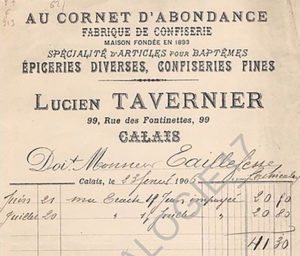 AU CORNET D'ABONDANCE
FABRIQUE DE CONFISERIE
MAISON FONDÉE EN 1893
SPÉCIALITÉ D'ARTICLES POUR BAPTÊMES
ÉPICERIES DIVERSES, CONFISERIES FINES
LUCIEN TAVERNIER
99, Rue des Fontinettes, 99
CALAIS
Doit Monsieur
Calais, le 190
21 ma Traite 20
20 20 80
41 30